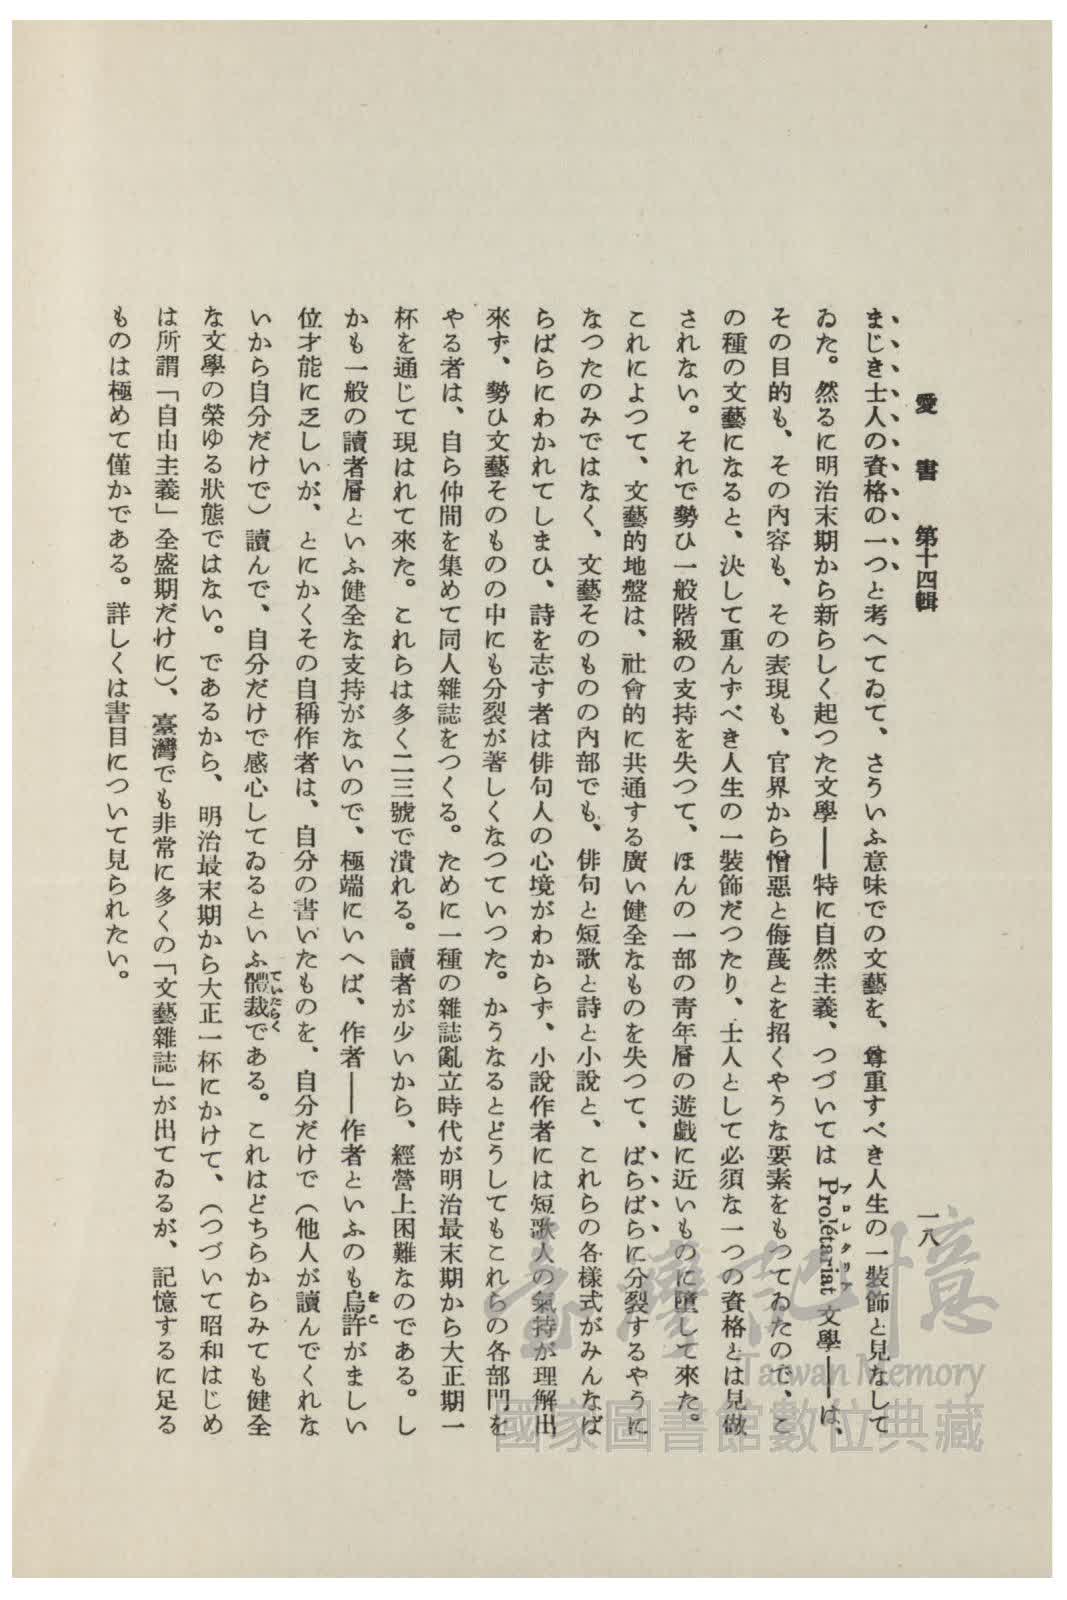 愛書 第十四輯
一八
まじき士人の資格の一つと考へてゐて、さういふ意味での文藝を、尊重すべき人生の一裝飾と見なして
ゐた。然るに明治末期から新らしく起つた文學――特に自然主義、つづいては Prolétariat 文學――は、
プロレタリア
その目的も、その內容も、その表現も、官界から憎惡と侮蔑とを招くやうな要素をもつてゐたので、こ
の種の文藝になると、決して重んずべき人生の一裝飾だつたり、士人として必須な一つの資格とは見做
されない。それで勢ひ一般階級の支持を失つて、ほんの一部の靑年層の遊戲に近いものに墮して來た。
これによつて、文藝的地盤は、社會的に共通する廣い健全なものを失つて、ばらばらに分裂するやうに
なつたのみではなく、文藝そのものの內部でも、俳句と短歌と詩と小說と、これらの各樣式がみんなば
らばらにわかれてしまひ、詩を志す者は俳句人の心境がわからず、小說作者には短歌人の氣持が理解出
來ず、勢ひ文藝そのものの中にも分裂が著しくなつていつた。かうなるとどうしてもこれらの各部門を
やる者は、自ら仲間を集めて同人雜誌をつくる。ために一種の雜誌亂立時代が明治最末期から大正期一
杯を通じて現はれて來た。これらは多く二三號で潰れる。讀者が少いから、經營上困難なのである。し
かも一般の讀者層といふ健全な支持がないので、極端にいへば、作者――作者といふのも烏許がましい
をこ
位才能に乏しいが、とにかくその自稱作者は、自分の書いたものを、自分だけで（他人が讀んでくれな
いから自分だけで）讀んで、自分だけで感心してゐるといふ體裁である。これはどちらからみても健全
ていたらく
な文學の榮ゆる狀態ではない。であるから、明治最末期から大正一杯にかけて、（つづいて昭和はじめ
は所謂「自由主義」全盛期だけに）、臺灣でも非常に多くの「文藝雜誌」が出てゐるが、記憶するに足る
ものは極めて僅かである。詳しくは書目について見られたい。
臺灣記憶
Taiwan Memory
國家圖書館數位典藏